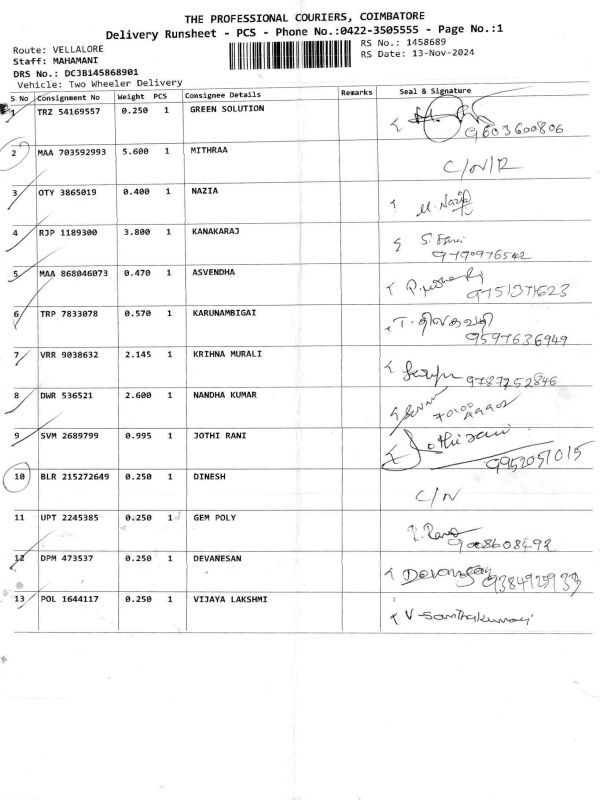 THE PROFESSIONAL COURIERS, COIMBATORE
Delivery Runsheet - PCS - Phone No.:0422-3505555 - Page No.:1
Route: VELLALORE
RS No.: 1458689
Staff: MAHAMANI
RS Date: 13-Nov-2024
DRS No.: DCJB145868901
Vehicle: Two Wheeler Delivery
S No Consignment No Weight PCS Consignee Details Remarks Seal & Signature
1 TRZ 54169557 0.250 1 GREEN SOLUTION
9603600806
2 MAA 703592993 5.600 1 MITHRAA
C/N/R
3 OTY 3865019 0.400 1 NAZIA
M. Nazia
4 RJP 1189300 3.800 1 KANAKARAJ
9790976542
5 MAA 868046073 0.470 1 ASVENDHA
9751371623
6 TRP 7833078 0.570 1 KARUNAMBIGAI
T. திலகவதி
9597636949
7 VRR 9038632 2.145 1 KRIHNA MURALI
9787252846
8 DWR 536521 2.600 1 NANDHA KUMAR
9 SVM 2689799 0.995 1 JOTHI RANI
Jothi rani
9952051015
10 BLR 215272649 0.250 1 DINESH
C/N
11 UPT 2245385 0.250 1 GEM POLY
9008608492
12 DPM 473537 0.250 1 DEVANESAN
9384925933
13 POL 1644117 0.250 1 VIJAYA LAKSHMI
V-Santhakumari